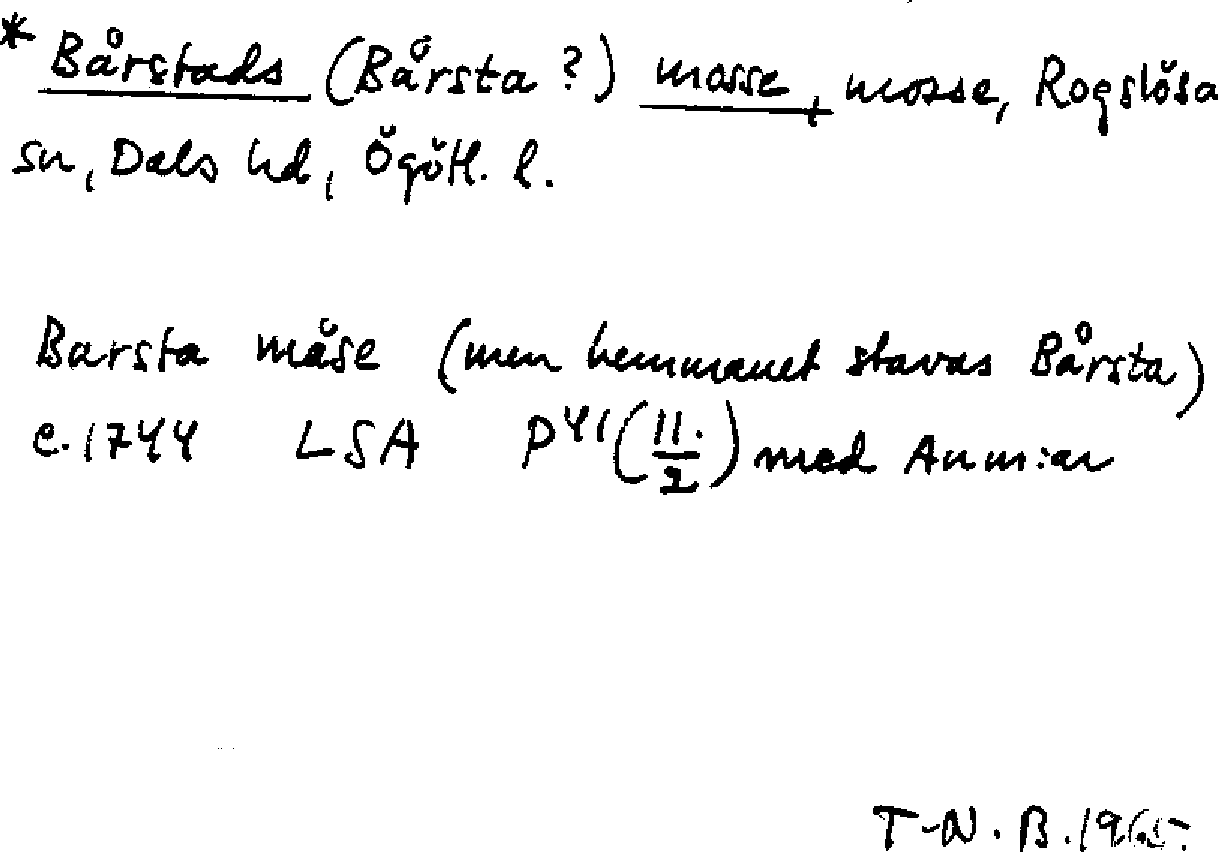 * Bårstads (Bårsta ?) mosse, mosse, Rogslösa
sn, Dals hd, Ögötl. l.
Barsta måse (men hemmanet stavas Bårsta)
c. 1744 LSA P41 (11./2) med Anm:ar
T-N. B. 1965.